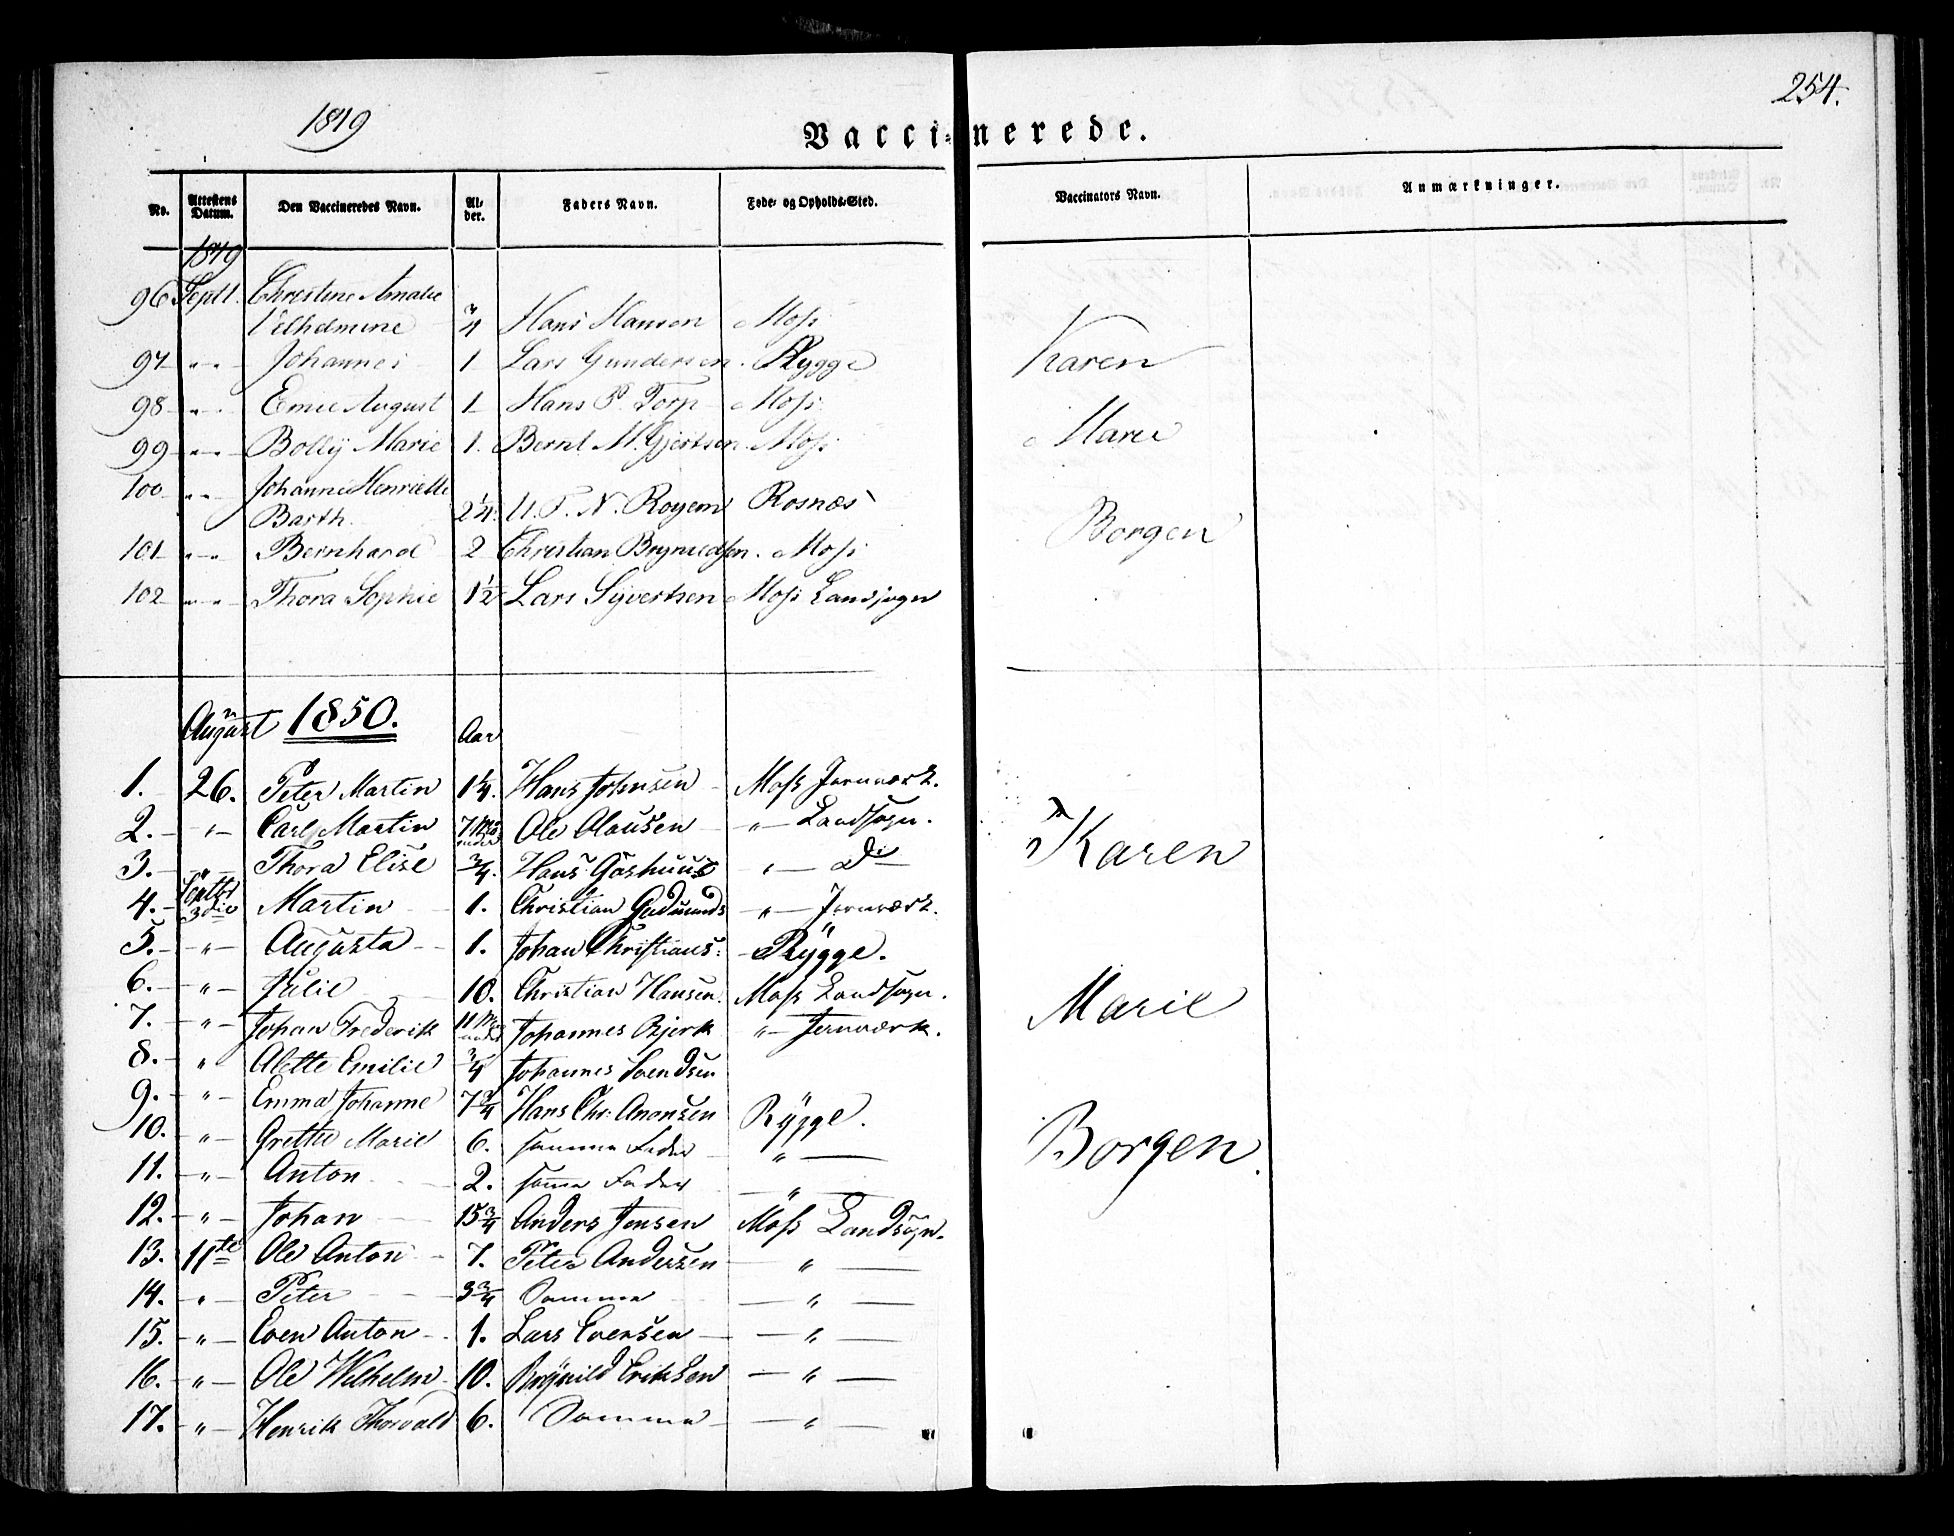 254.
1849
Vaccinerede.
No. Attestens Datum. Den Vaccineredes Navn. Alder. Faders Navn. Føde- og Opholds-Sted. Vaccinators Navn. Anmærkninger.
1849
96 Septl. Christine Amalie
Vilhelmine 3/4 Hans Hansen Moss
97 " Johannes 1 Lars Gundersen Rygge Karen
98 " Emil August 1 Hans P. Torp Moss
99 " Bolly Marie 1. Bernt M. Gjertsen Moss Marie
100 " Johanne Henriette
Barth. 2 1/4 N. Royem Rosnæs Borgen
101 " Bernhard 2 Christian Brynildsen. Moss
102 " Thora Sophie 1 1/2 Lars Syvertsen Moss Landsogn
August 1850. Aar
1. 26. Peter Martin 1 1/4. Hans Johnsen Moss Jernværk.
2. " Carl Martin 7 Ole Olausen " Landsogn.
3. " Thora Elise 3/4. Hans Gashuus " Do Karen
4. Septbr 3die Martin 1. Christian Gudmunds " Jernværk.
5. " Augusta 1. Johan Christians: Rygge.
6. " Julie 10. Christian Hansen. Moss Landsogn.
7. " Johan Frederik 11 Johannes Bjerk " Jernværk. Marie
8. " Alette Emilie 3/4 Johannes Svendsen
9. " Emma Johanne 7 3/4 Hans Chr: Anonsen Rygge.
10. " Grethe Marie 6. samme Fader " Borgen.
11. " Anton 2. samme Fader "
12. " Johan 15 3/4 Anders Jensen Moss Landsogn.
13. 11te Ole Anton 7. Peter Andersen "
14. " Peter 3 3/4 Samme "
15. " Even Anton 1. Lars Evensen "
16. " Ole Wilhelm 10. Brynild Eriksen "
17. " Henrik Thorvald 6. Samme "